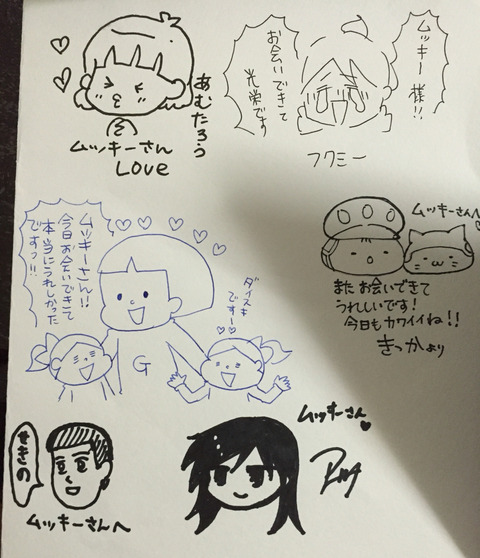 あむたろう
ムッキーさん
LOVE
ムッキー様!!
お会いできて
光栄です
フクミー
ムッキーさん!!
今日お会いできて
本当にうれしかった
ですっ!!
ダイスキ
ですー
G
ムッキーさんへ
また お会いできて
うれしいです!
今日もカワイイね!!
きっかより
せきの
ムッキーさんへ
ムッキーさん